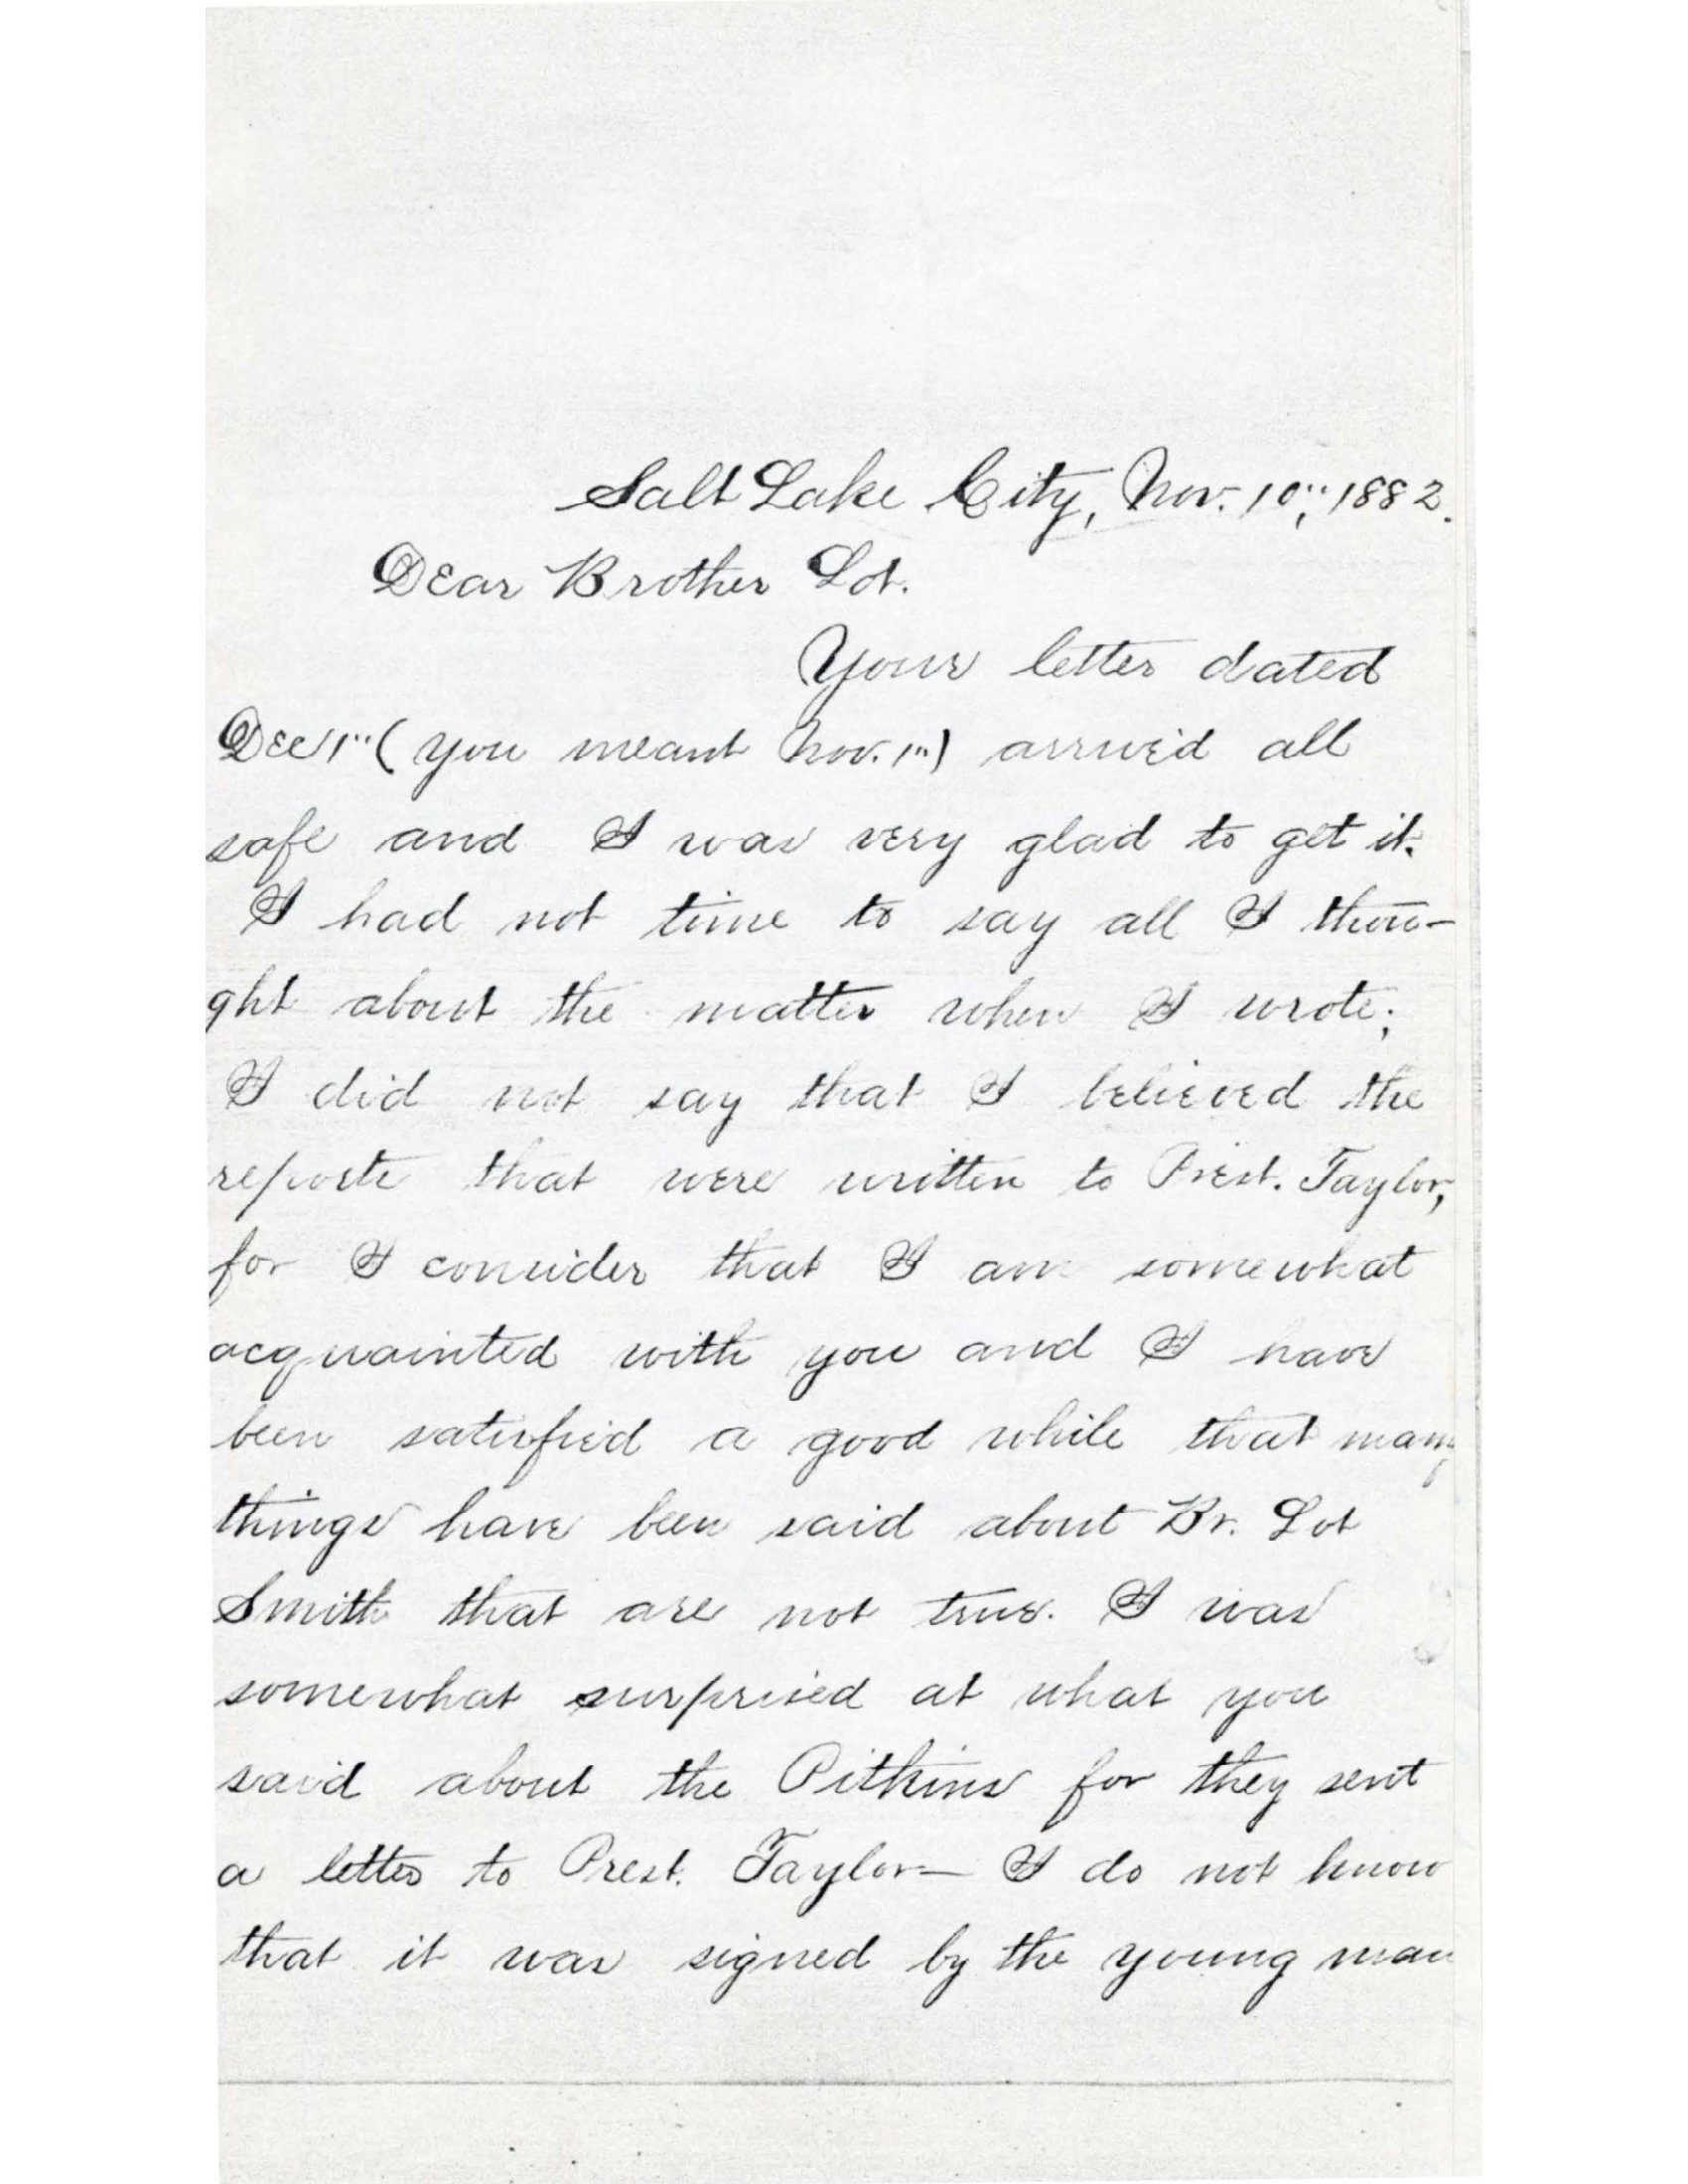 Salt Lake City, Nov. 10", 1882.
Dear Brother Lot.
Your letter dated
Dec 1" (you meant Nov. 1") arrived all
safe and I was very glad to get it.
I had not time to say all I thou-
ght about the matter when I wrote;
I did not say that I believed the
reports that were written to Prest. Taylor,
for I consider that I am somewhat
acquainted with you and I have
been satisfied a good while that many
things have been said about Br. Lot
Smith that are not true. I was
somewhat surprised at what you
said about the Pitkins for they sent
a letter to Prest. Taylor— I do not know
that it was signed by the young man